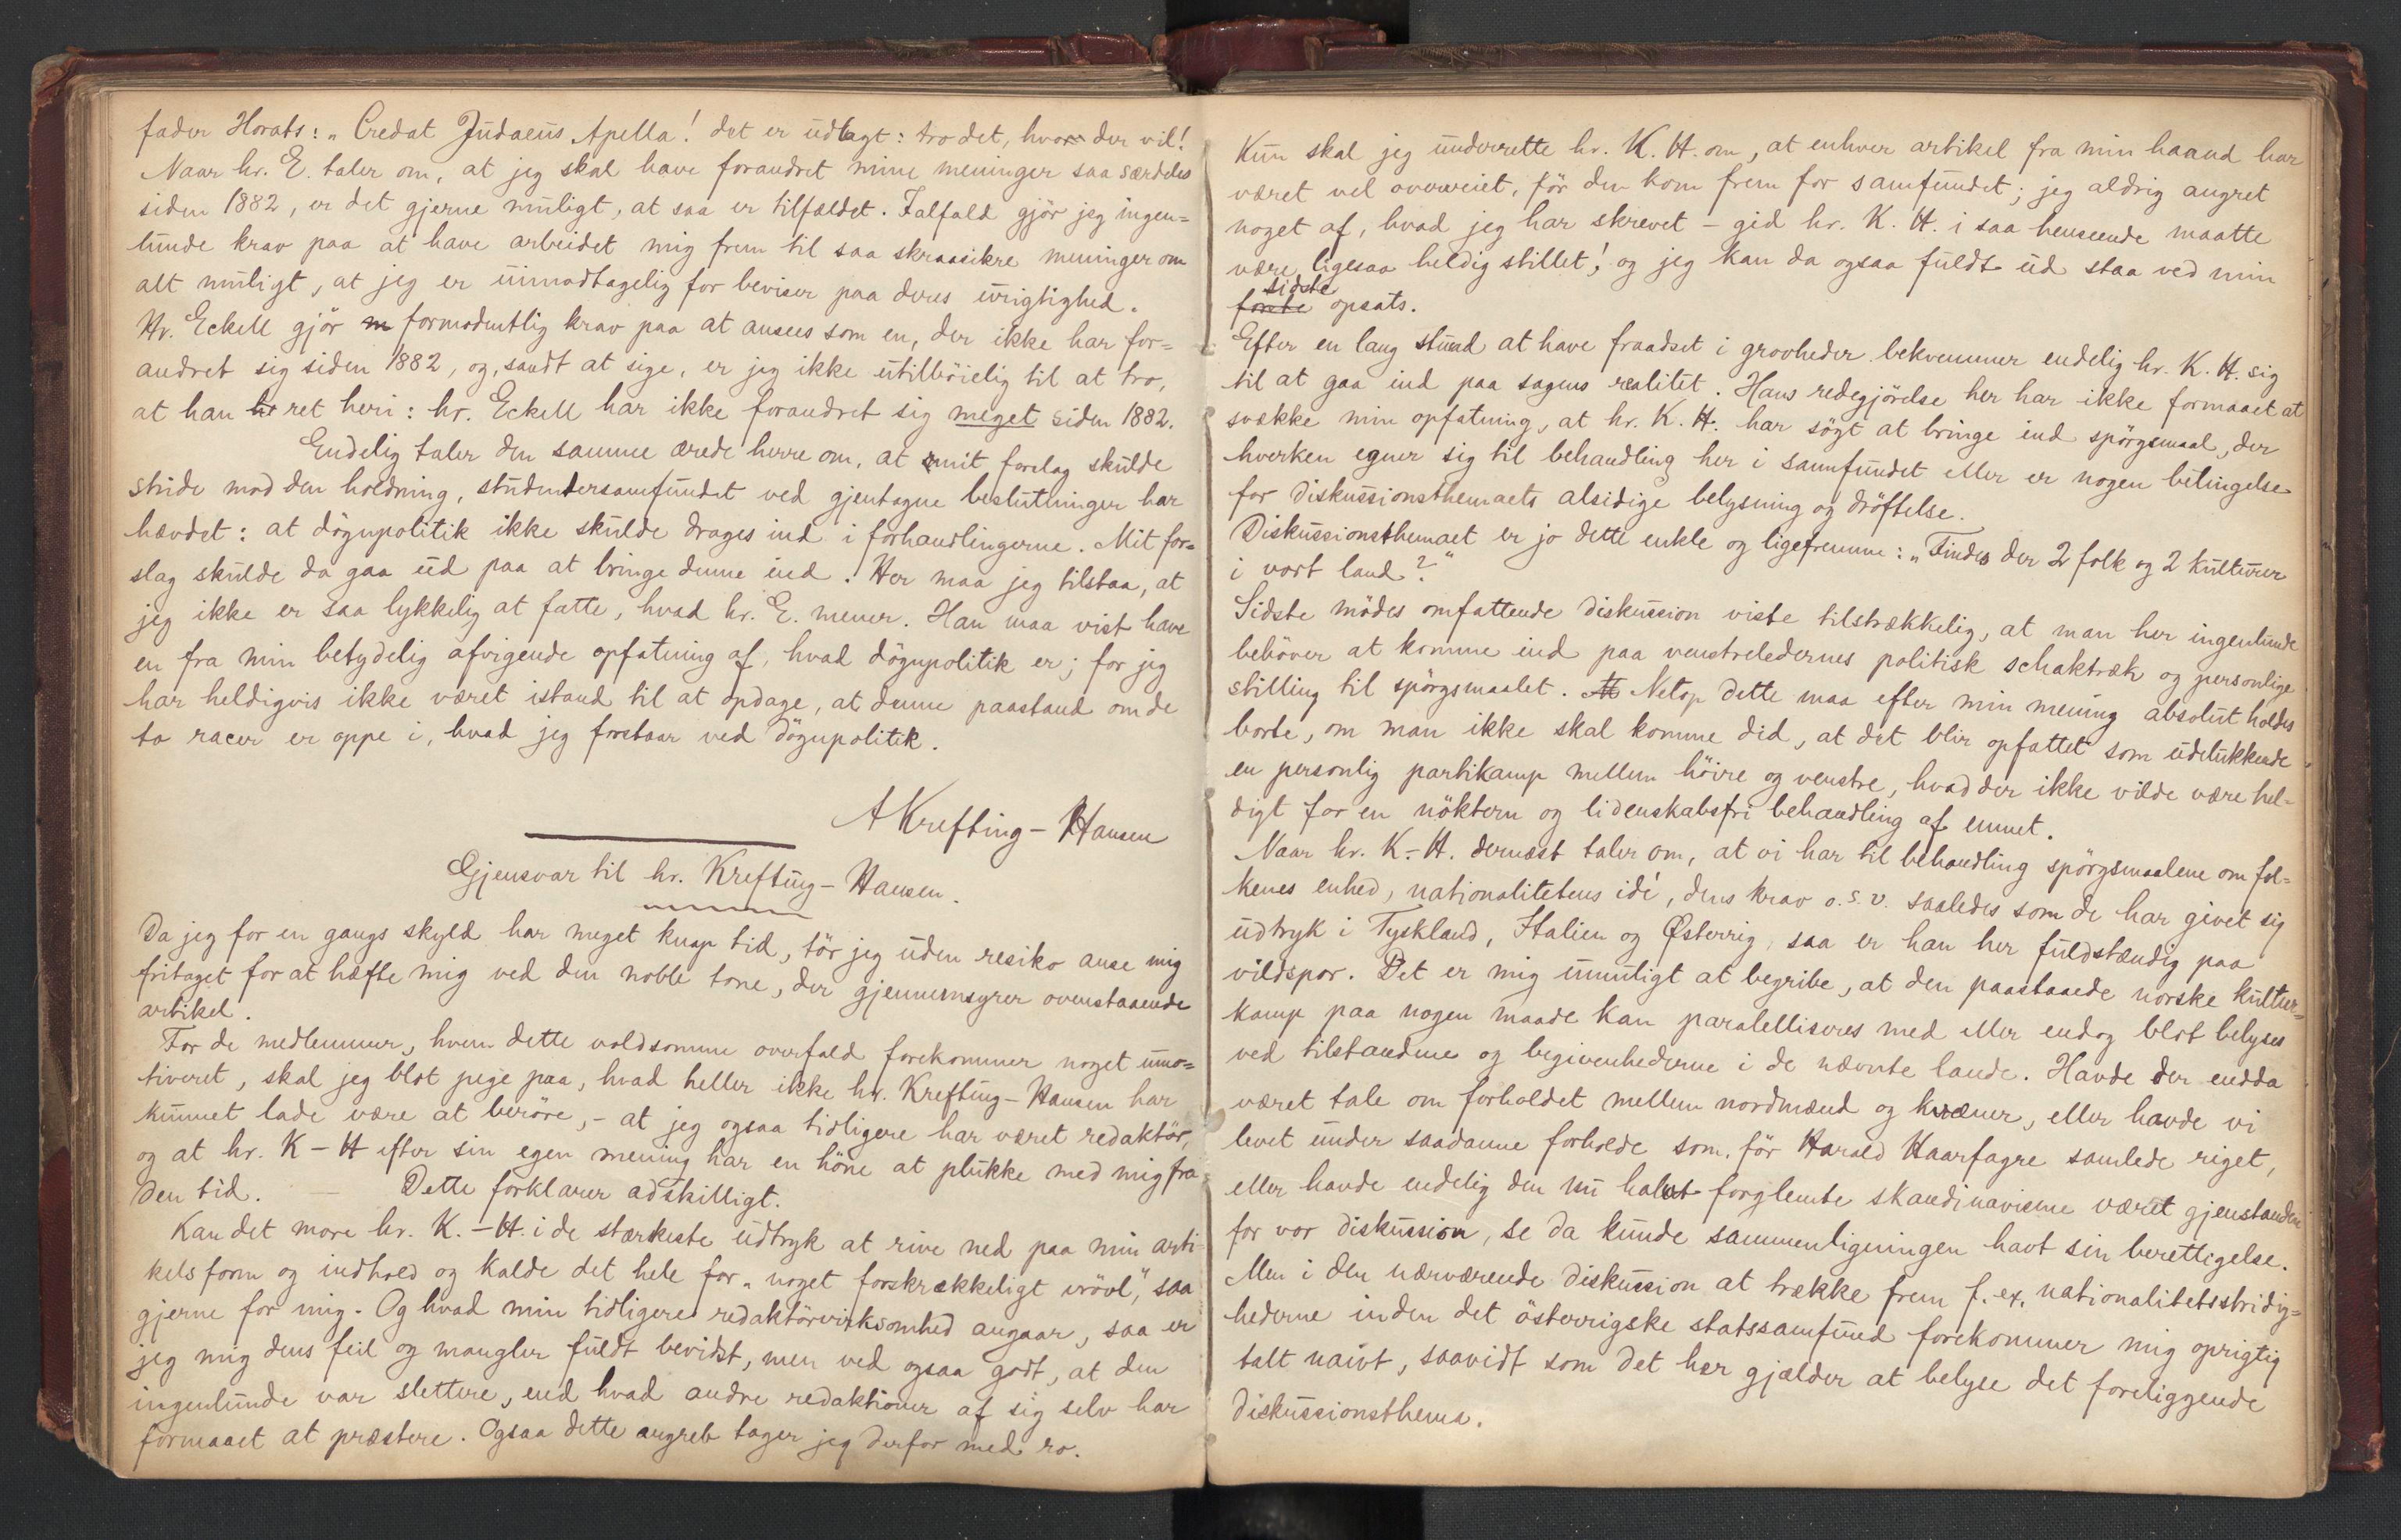 fader Horats: „Credat Judaeus Apella! det er udlagt: tro det, hvem der vil!
Naar hr. E. taler om, at jeg skal have forandret mine meninger saa særdeles
siden 1882, er det gjerne muligt, at saa er tilfældet. Ialfald gjör jeg ingen=
lunde krav paa at have arbeidet mig frem til saa skraasikre meninger om
alt muligt, at jeg er uimodtagelig for beviser paa deres urigtighed.
Hr. Eckell gjör formodentlig krav paa at ansees som en, der ikke har for=
andret sig siden 1882, og, sandt at sige, er jeg ikke utilböielig til at tro,
at han har ret heri: hr. Eckell har ikke forandret sig meget siden 1882.
Endelig taler den samme ærede herre om, at mit forslag skulde
stride mod den holdning, studentersamfundet ved gjentagne beslutninger har
hævdet: at dögnpolitik ikke skulde drages ind i forhandlingerne. Mit for=
slag skulde da gaa ud paa at bringe denne ind. Her maa jeg tilstaa, at
jeg ikke er saa lykkelig at fatte, hvad hr. E. mener. Han maa vist have
en fra min betydelig afvigende opfatning af, hvad dögnpolitik er; for jeg
har heldigvis ikke været istand til at opdage, at denne paastand om de
to racer er oppe i, hvad jeg forstaar ved dögnpolitik.
A Krefting-Hansen
Gjensvar til hr. Krefting-Hansen.
Da jeg for en gangs skyld har meget knap tid, tör jeg uden resiko anse mig
fritaget for at hæfte mig ved den noble tone, der gjennemsyrer ovenstaaende
artikel.
For de medlemmer, hvem dette voldsomme overfald forekommer noget umo=
tiveret, skal jeg blot pege paa, hvad heller ikke hr. Krefting-Hansen har
kunnet lade være at beröre, - at jeg ogsaa tidligere har været redaktör,
og at hr. K-H efter sin egen mening har en höne at plukke med mig fra
den tid. — Dette forklarer adskilligt.
Kan det more hr. K.-H. i de stærkeste udtryk at rive ned paa min arti=
kels form og indhold og kalde det hele for „noget forskrækkeligt vrövl," saa
gjerne for mig. Og hvad min tidligere redaktörvirksomhed angaar, saa er
jeg mig dens feil og mangler fuldt bevidst, men ved ogsaa godt, at den
ingenlunde var slettere, end hvad andre redaktioner af sig selv har
formaaet at præstere. Ogsaa dette angreb tager jeg derfor med ro.
Kun skal jeg underrette hr. K. H. om, at enhver artikel fra min haand har
været vel overveiet, för den kom frem for samfundet; jeg aldrig angret
noget af, hvad jeg har skrevet - gid hr. K. H. i saa henseende maatte
være ligesaa heldig stillet! og jeg kan da ogsaa fuldt ud staa ved min
sidste
förste opsats.
Efter en lang stund at have fraadset i grovheder bekvemmer endelig hr. K. H. sig
til at gaa ind paa sagens realitet. Hans redegjörelse her har ikke formaaet at
svække min opfatning, at hr. K. H. har sögt at bringe ind spörgsmaal, der
hverken egner sig til behandling her i samfundet eller er nogen betingelse
for diskussionsthemaets alsidige belysning og dröftelse.
Diskussionsthemaet er jo dette enkle og ligefremme: „Findes der 2 folk og 2 kulturer
i vort land?"
Sidste mödes omfattende diskussion viste tilstrækkelig, at man her ingenlunde
behöver at komme ind paa venstreledernes politisk schaktræk og personlige
stilling til spörgsmaalet. At Netop dette maa efter min mening absolut holdes
borte, om man ikke skal komme did, at det blir opfattet som udelukkende
en personlig partikamp mellem höire og venstre, hvad der ikke vilde være hel=
digt for en nöktern og lidenskabsfri behandling af emnet.
Naar hr. K.-H. dernæst taler om, at vi har til behandling spörgsmaalene om fol=
kenes enhed, nationalitetens idé, dens krav o.s.v. saaledes som de har givet sig
udtryk i Tyskland, Italien og Østerrig, saa er han her fuldstændig paa
vildspor. Det er mig umuligt at begribe, at den paastaaede norske kultur=
kamp paa nogen maade kan paralelliseres med eller endog blot belyses
ved tilstandene og begivenhederne i de nævnte lande. Havde der endda
været tale om forholdet mellem nordmænd og kvæner, eller havde vi
levet under saadanne forholde som för Harald Haarfagre samlede riget,
eller havde endelig den nu halvt forglemte skandinavisme været gjenstanden
for vor diskussion, se da kunde sammenligningen havt sin berettigelse.
Men i den nærværende diskussion at trække frem f. ex. nationalitetsstridig=
hederne inden det österrigske statssamfund forekommer mig oprigtig
talt naivt, saavidt som det her gjælder at belyse det foreliggende
diskussionsthema.